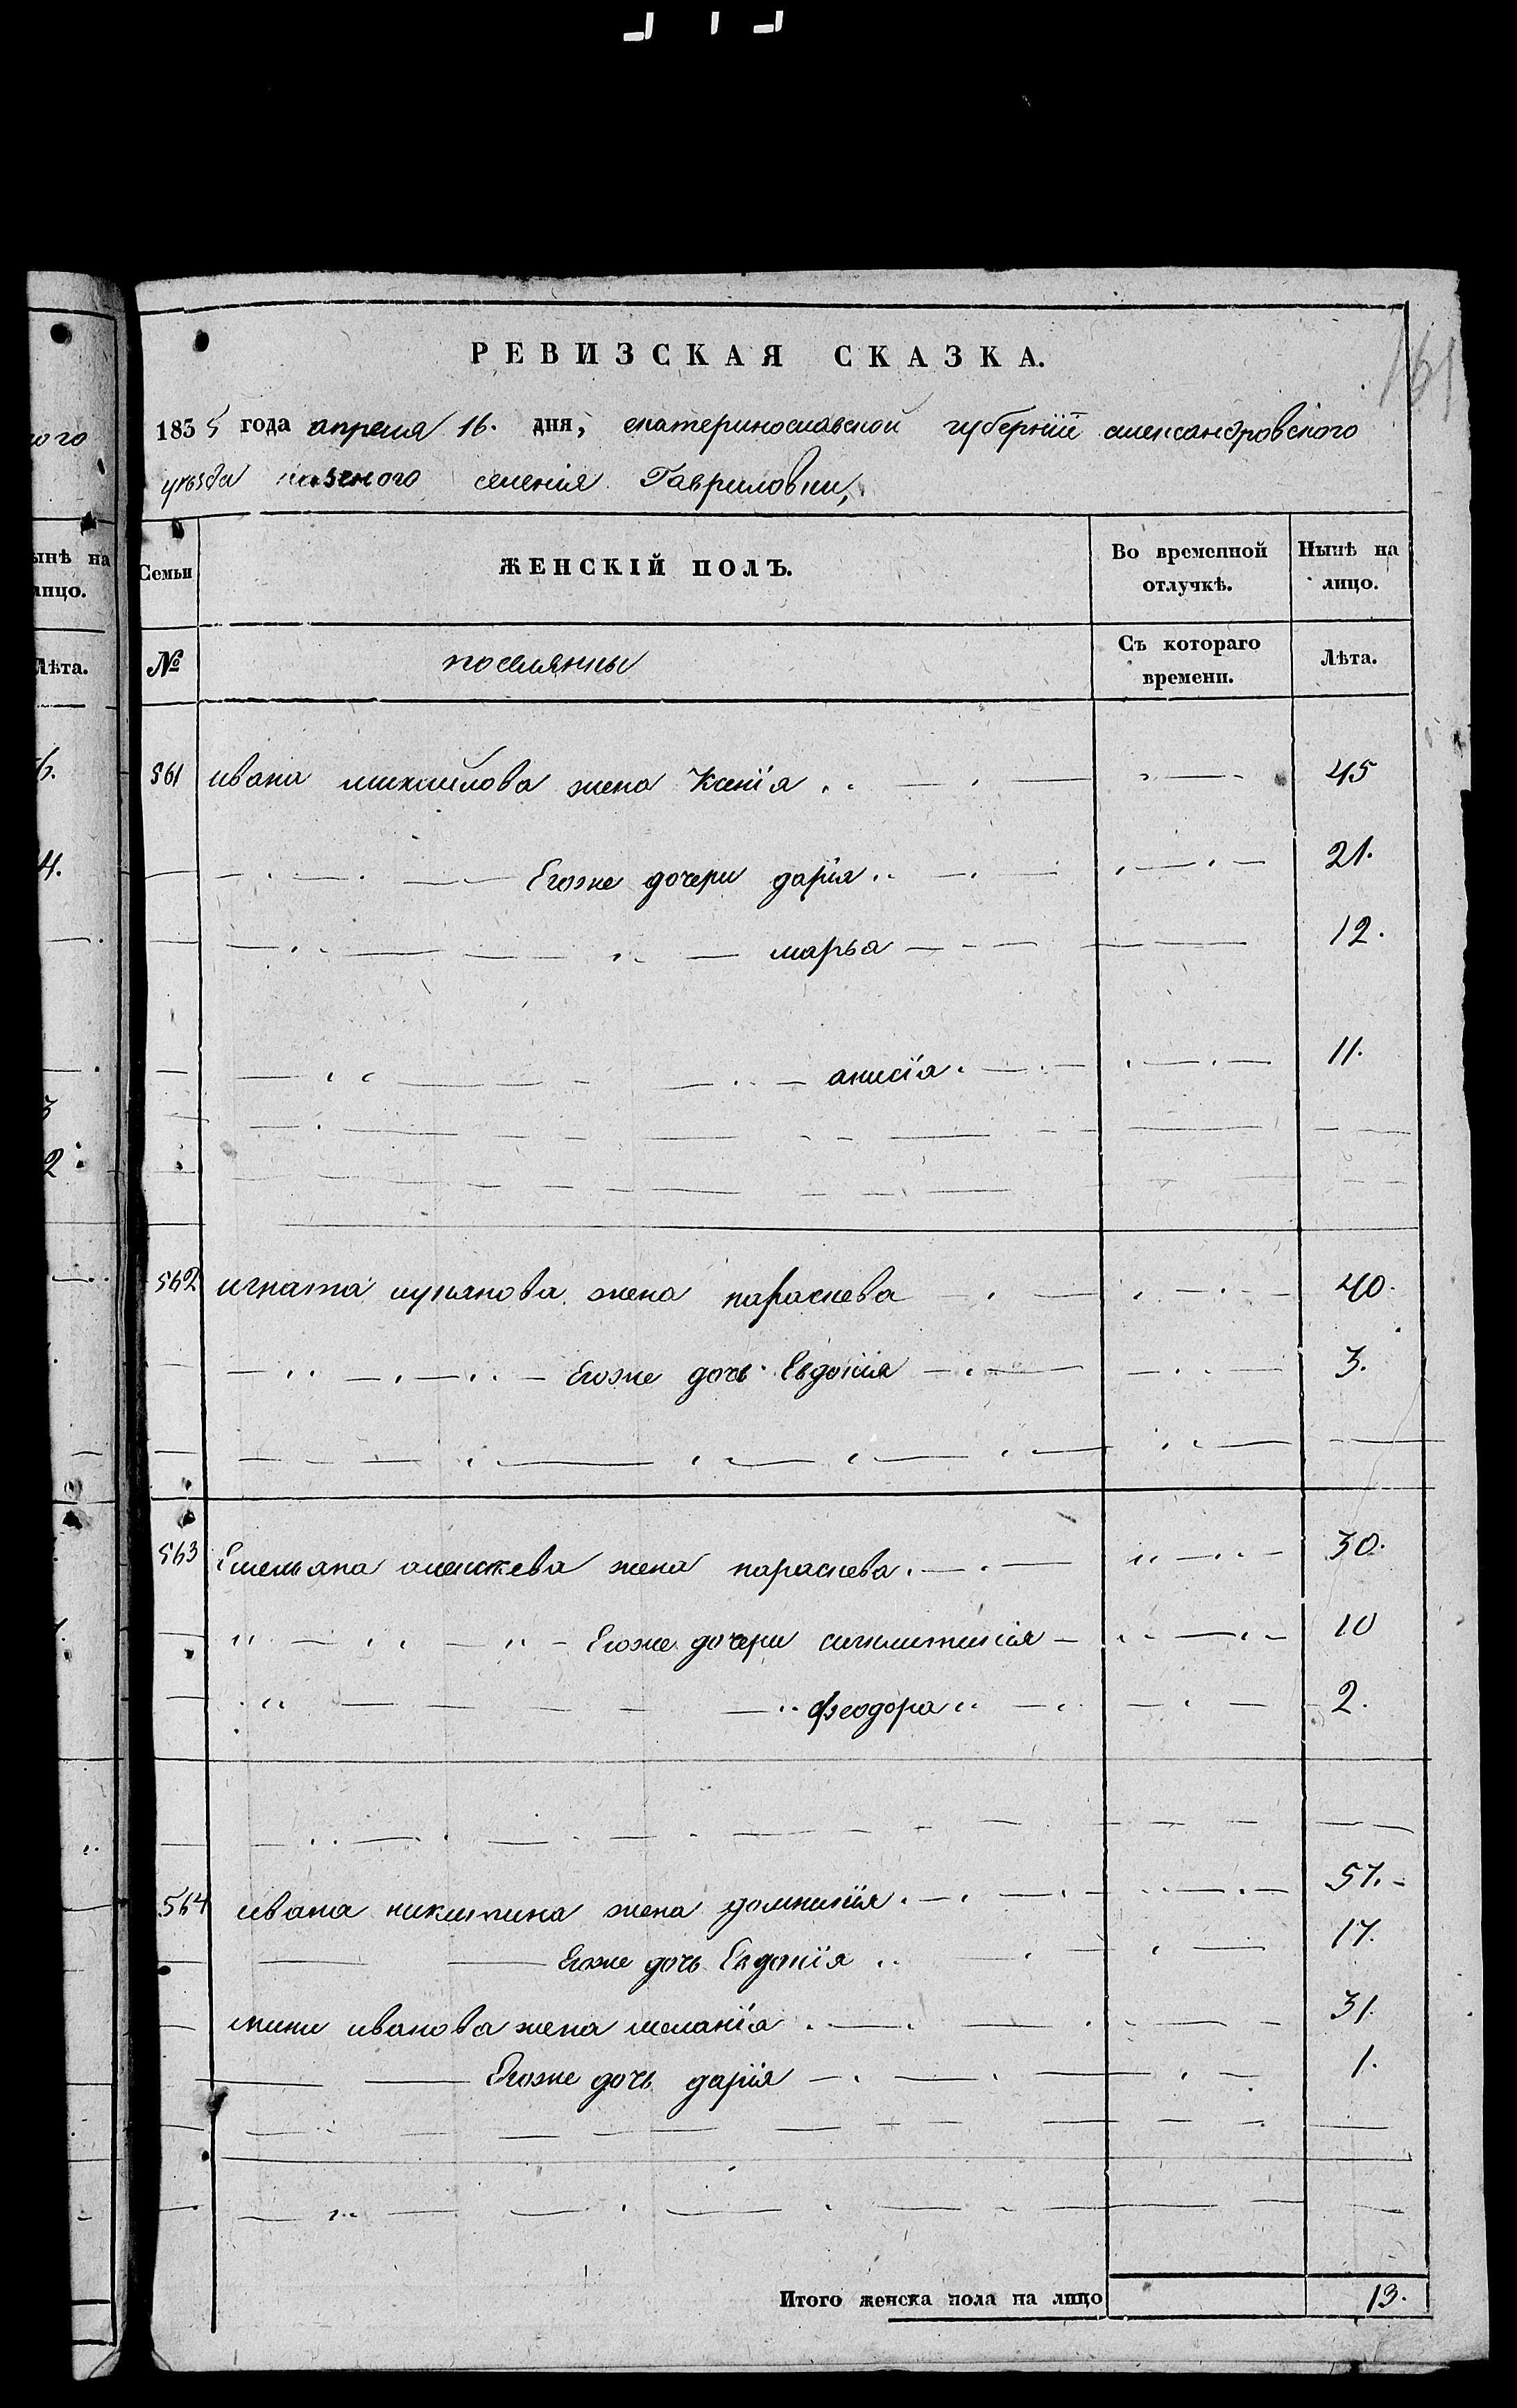 161
РЕВИЗСКАЯ СКАЗКА.
1835 года апреля 16. дня, екатеринославской губернїй александровского
уезда казенного селенїя Гавриловки,
Семьи
ЖЕНСКІЙ ПОЛЪ.
Во временной отлучкѣ.
Нынѣ на лицо.
№
поселянны
Съ котораго времени.
Лѣта.
561 ивана михайлова жена Ксенїя 45
Егоже дочери дарїя 21.
марья 12.
анисїя 11.
562 игната лукянова жена параскева 40.
Егоже дочь Евдокїя 3.
563 Емельяна алексеева жена параскева 30.
Егоже дочери синклитикїя 10
феодора 2.
564 ивана никитина жена домникїя 57.
Егоже дочь Евдокїя 17.
ивanова жена меланїя 31.
Егоже дочь дарїя 1.
Итого женска пола на лицо 13.
ого
ынѣ на
лицо.
Лѣта.
6.
4.
3
2